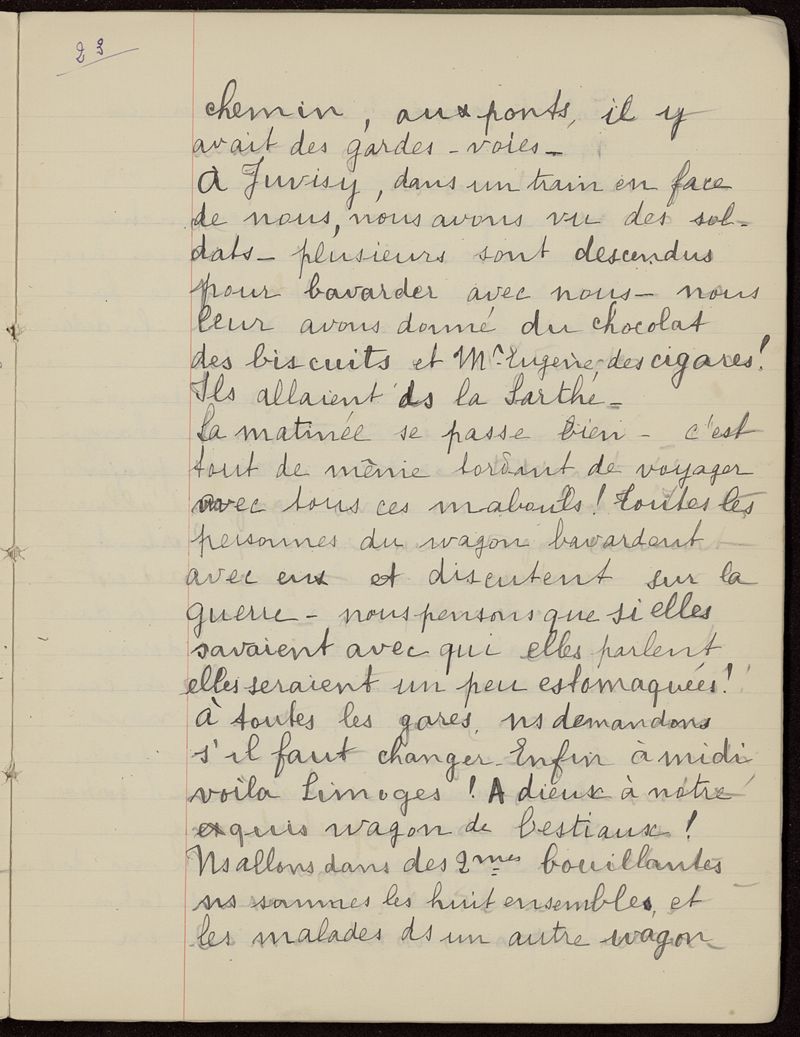 23
chemin, aux ponts, il y
avait des gardes-voies_
À Juvisy, dans un train en face
de nous, nous avons vu des sol-
dats_ plusieurs sont descendus
pour bavarder avec nous_ nous
leur avons donné du chocolat
des biscuits et Mr Eugène des cigares!
Ils allaient ds la Sarthe_
La matinée se passe bien_ c'est
tout de même tordant de voyager
avec tous ces mabouls! toutes les
personnes du wagon bavardent
avec eux et discutent sur la
guerre_ nous pensons que si elles
savaient avec qui elles parlent
elles seraient un peu estomaquées!
À toutes les gares, ns demandons
s'il faut changer_ Enfin à midi
voila Limoges! Adieux à notre
exquis wagon de bestiaux!
Ns allons dans des 2mes bouillantes
ns sommes les huit ensembles, et
les malades ds un autre wagon_